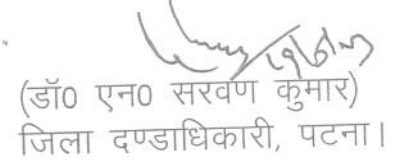 (डॉ0 एन0 सरवण कुमार)
जिला दण्डाधिकारी, पटना।